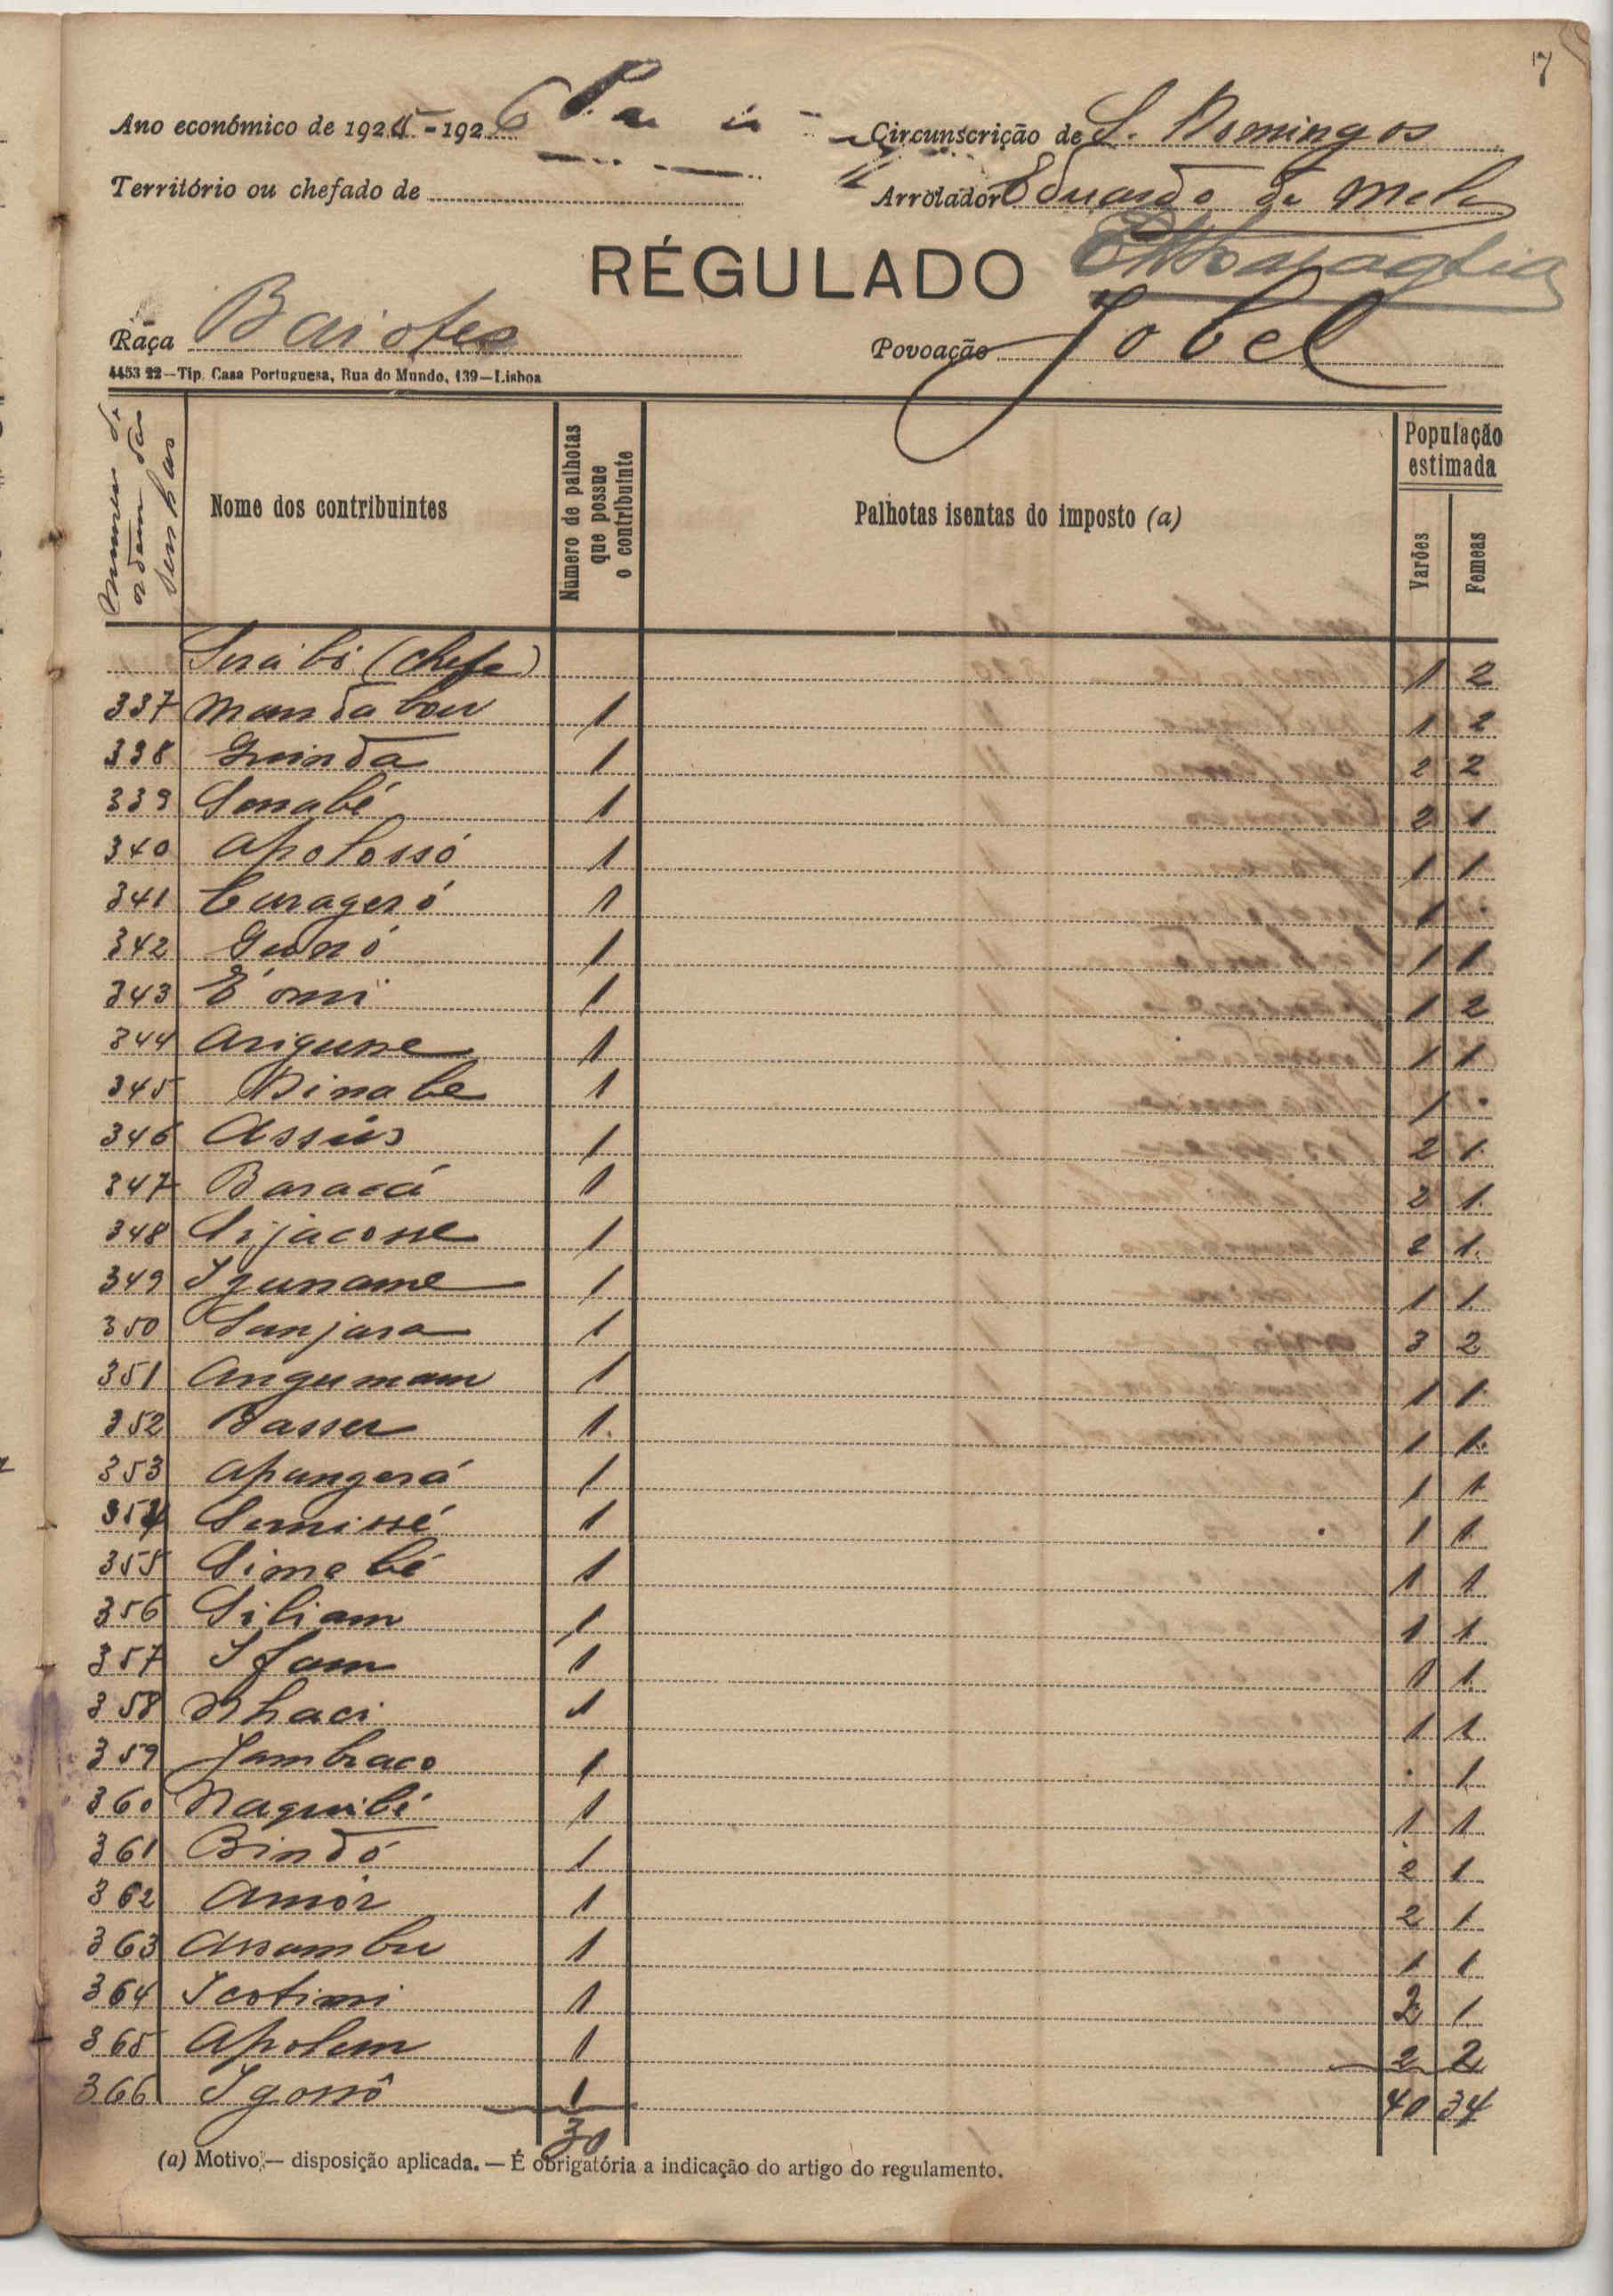 7
Ano económico de 1925-1926
Circunscrição de S. Domingos
Território ou chefado de
Arrolador Eduardo de Melo
RÉGULADO
Raça Baiotes
Povoação Jobel
4453 22—Tip. Casa Portuguesa, Rua do Mundo, 139—Lisboa
Numero de ordem das senhas
Nome dos contribuintes
Número de palhotas que possue o contribuinte
Palhotas isentas do imposto (a)
População estimada
Varões
Femeas
Suraibi (Chefe) 1 2
337 Mandabou 1 1 2
338 Guinda 1 2 2
339 Senabé 1 2 1
340 Apolossó 1 1 1
341 Curageró 1 1 .
342 Gunó 1 1 1
343 É omi 1 1 2
344 Arigune 1 1 1
345 Dinabe 1 1 .
346 Assús 1 2 1
347 Baracá 1 2 1
348 Sijacosse 1 2 1
349 Iguname 1 1 1
350 Sanjara 1 3 2
351 Angumam 1 1 1
352 Basser 1 1 1
353 Apungerá 1 1 1
354 Semissé 1 1 1
355 Simebé 1 1 1
356 Siliam 1 1 1
357 Ifam 1 1 1
358 Nhaci 1 1 1
359 Jambraco 1 . 1
360 Naquibi 1 1 1
361 Bindó 1 2 1
362 Amór 1 2 1
363 Assambu 1 1 1
364 Icotimi 1 2 1
365 Apolem 1 2 2
366 Igossô 1 40 34
30
(a) Motivo,— disposição aplicada. — É obrigatória a indicação do artigo do regulamento.